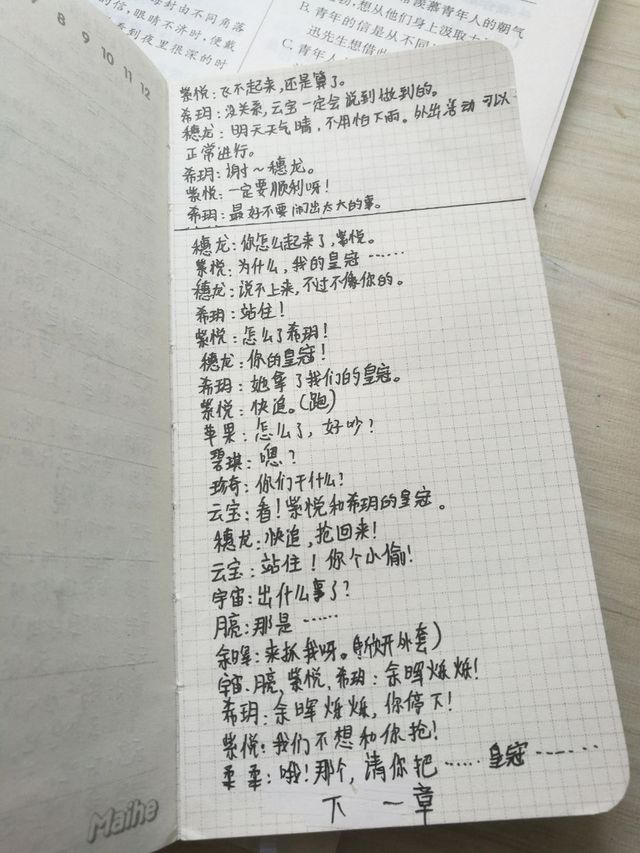 7 8 9 10 11 12
每封由不同角落
的信,眼睛不济时,便戴
看到夜里很深的时
B. 青年的信是从不同
C. 青年人
紫悦:飞不起来,还是算了。
希玥:没关系,云宝一定会说到做到的。
穗龙:明天天气晴,不用怕下雨。外出活动可以
正常进行。
希玥:谢~穗龙。
紫悦:一定要顺利呀!
希玥:最好不要闹出太大的事。
穗龙:你怎么起来了,紫悦。
紫悦:为什么,我的皇冠……
穗龙:说不上来,不过不像你的。
希玥:站住!
紫悦:怎么了希玥!
穗龙:你的皇冠!
希玥:她拿了我们的皇冠。
紫悦:快追。(跑)
苹果:怎么了,好吵?
碧琪:嗯?
珍奇:你们干什么?
云宝:看!紫悦和希玥的皇冠。
穗龙:快追,抢回来!
云宝:站住!你个小偷!
宇宙:出什么事了?
月亮:那是……
余晖:来抓我呀。(掀开外套)
宇宙、月亮、紫悦、希玥:余晖烁烁!
希玥:余晖烁烁,你停下!
紫悦:我们不想和你抢!
柔柔:哦!那个,请你把……皇冠……
下一章
Maihe